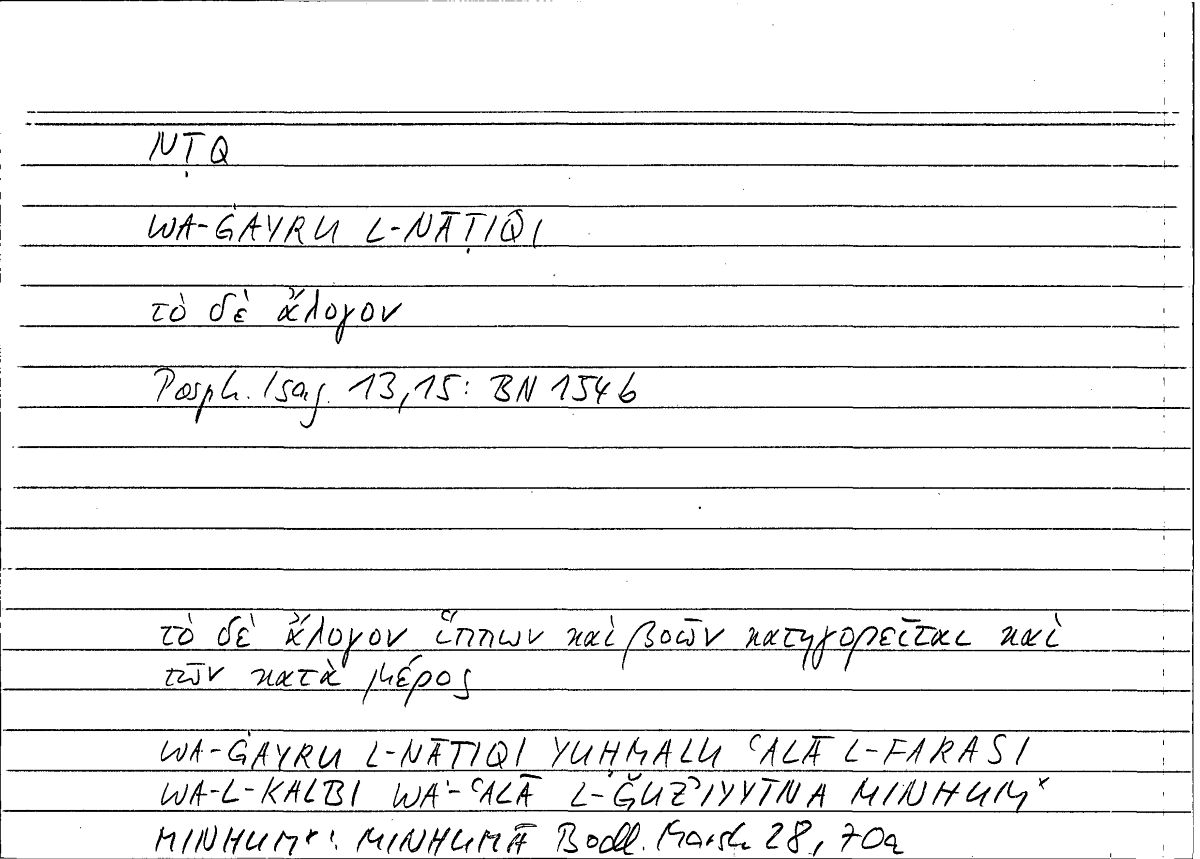 NṬQ
WA-ĠAYRU L-NĀṬIQI
τὸ δὲ ἄλογον
Porph. Isag. 13,15: BN 154b
τὸ δὲ ἄλογον ἵππων καὶ βοῶν κατηγορεῖται καὶ
τῶν κατὰ μέρος
WA-ĠAYRU L-NĀTIQI YUHMALU ʿALĀ L-FARASI
WA-L-KALBI WA-ʿALĀ L-ǦUZʾIYYĪNA MINHUM*
MINHUM*: MINHUMĀ Bodl. Marsh 28, 70a